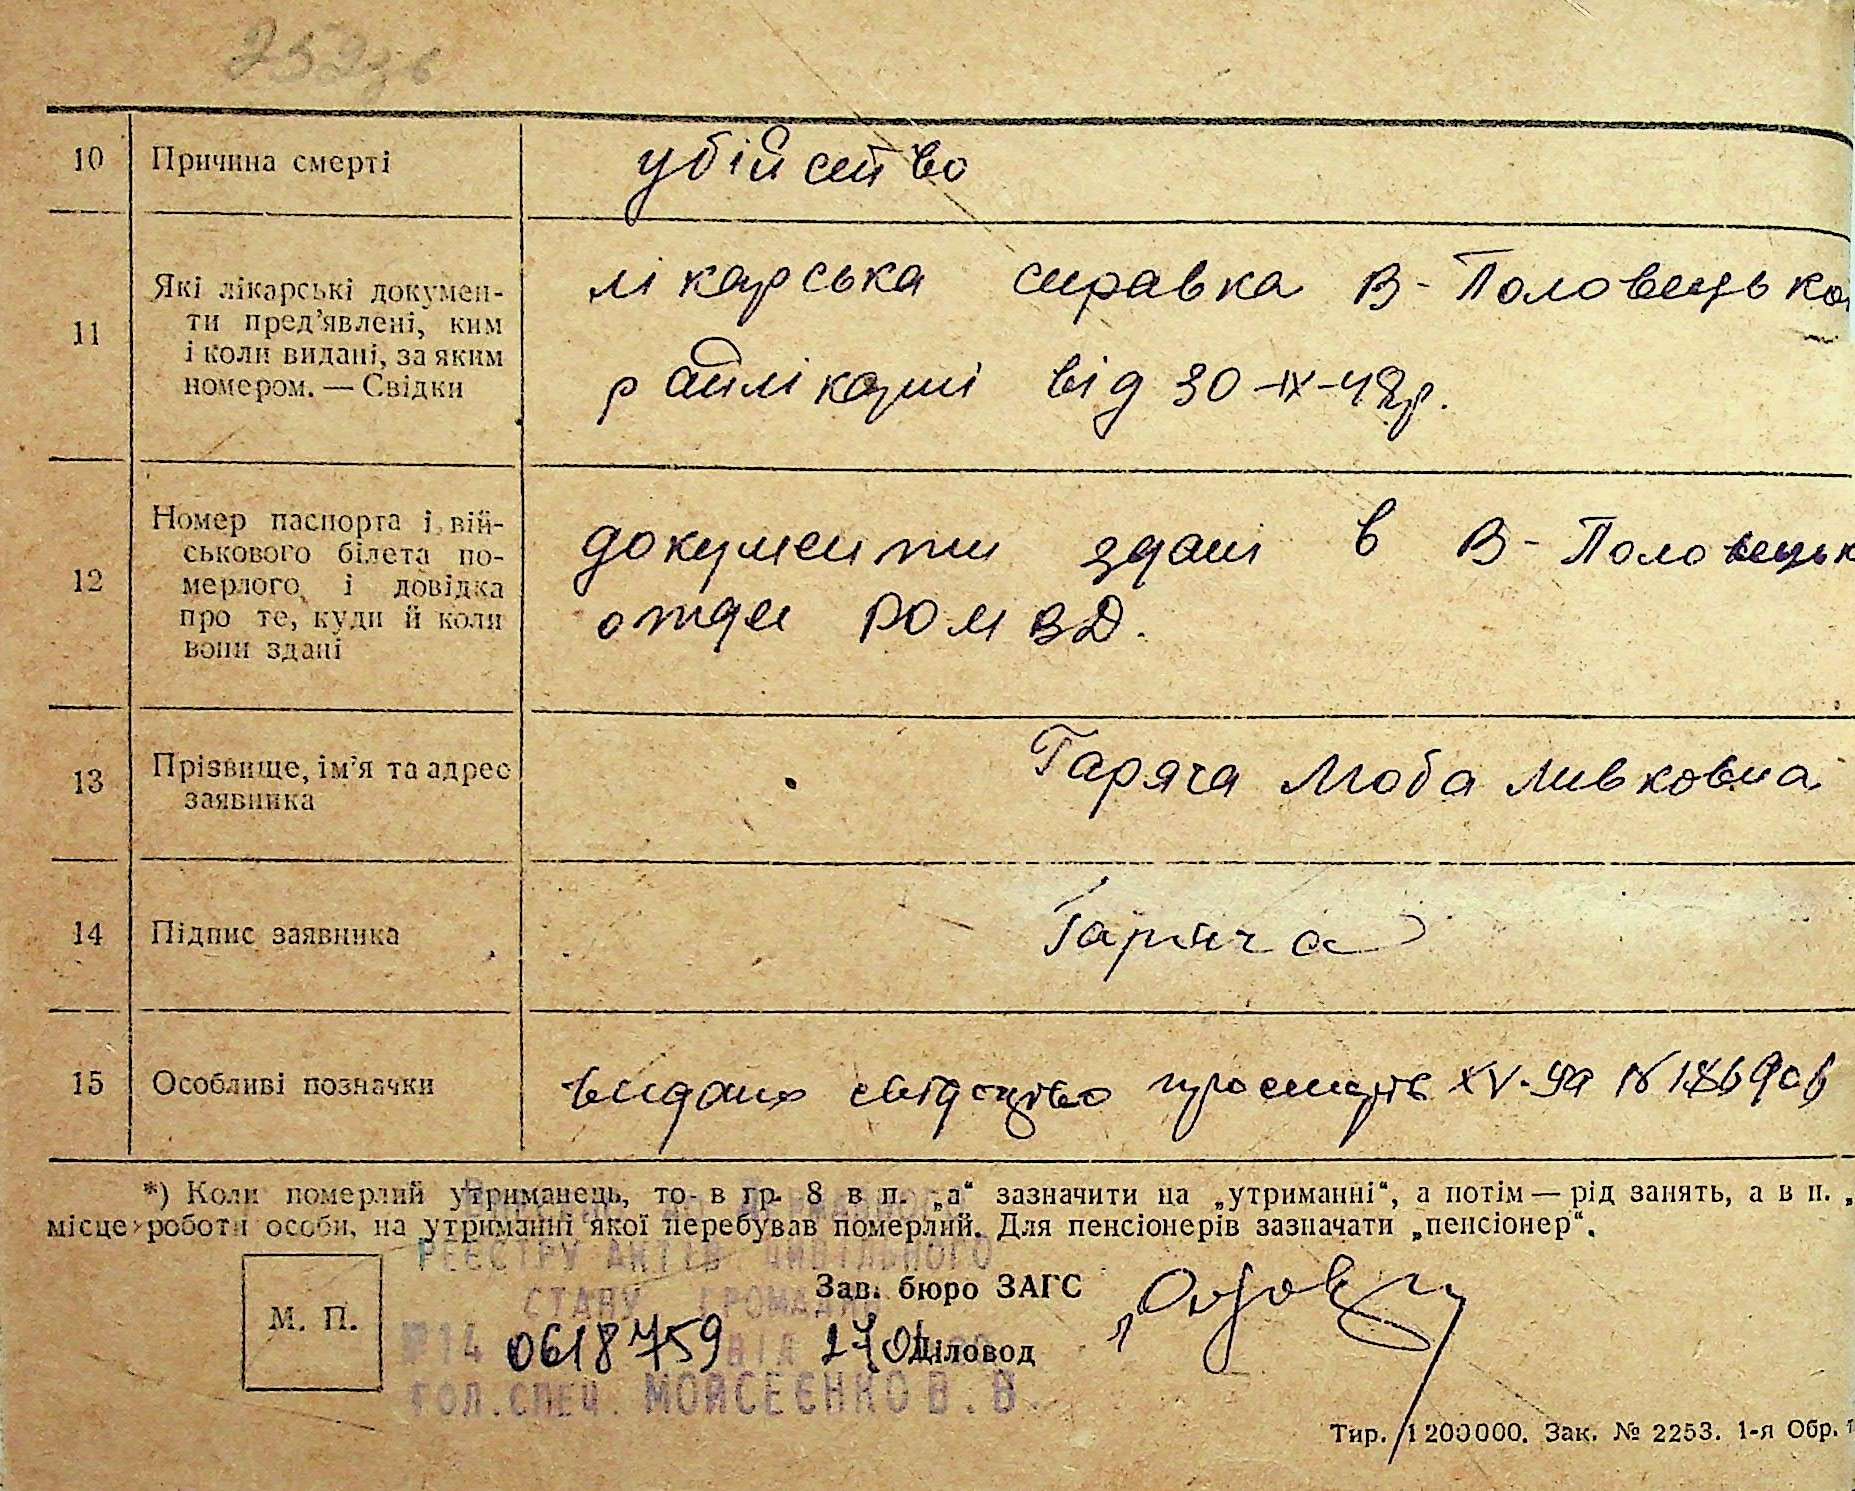 252зв
10 Причина смерті убійство
11 Які лікарські докумен-
ти пред'явлені, ким
і коли видані, за яким
номером. — Свідки
лікарська справка В-Половецької
райлікарні від 30-IX-48р.
12 Номер паспорта і вій-
ськового білета по-
мерлого, і довідка
про те, куди й коли
вони здані
документи здані в В-Половецьк
отде РОМВД.
13 Прізвище, ім'я та адрес
заявника
Гаряча Люба Ливковна
14 Підпис заявника Гаряча
15 Особливі позначки видано свідоцтво про смерть XV-УЯ №
*) Коли померлий утриманець, то в гр. 8 в п. „а“ зазначити на „утриманні“, а потім — рід занять, а в п. „
місце роботи особи, на утриманні якої перебував померлий. Для пенсіонерів зазначати „пенсіонер“.
РЕЄСТРУ АКТІВ ЦИВІЛЬНОГО
СТАНУ ГРОМАДЯН
М. П.
Зав. бюро ЗАГС
№14 0618759 ВІД 27.01
Діловод
ГОЛ.СПЕЦ. МОЙСЕЄНКО В.В.
Тир. 1 200000. Зак. № 2253. 1-я Обр.